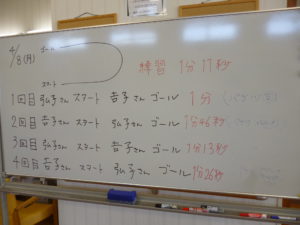 4/8(月)
ゴール
スタート
練習 1分17秒
1回目 弘子さん スタート 吉子さん ゴール 1分
2回目 吉子さん スタート 弘子さん ゴール 1分46秒
3回目 弘子さん スタート 吉子さん ゴール 1分13秒
4回目 吉子さん スタート 弘子さん ゴール 1分26秒